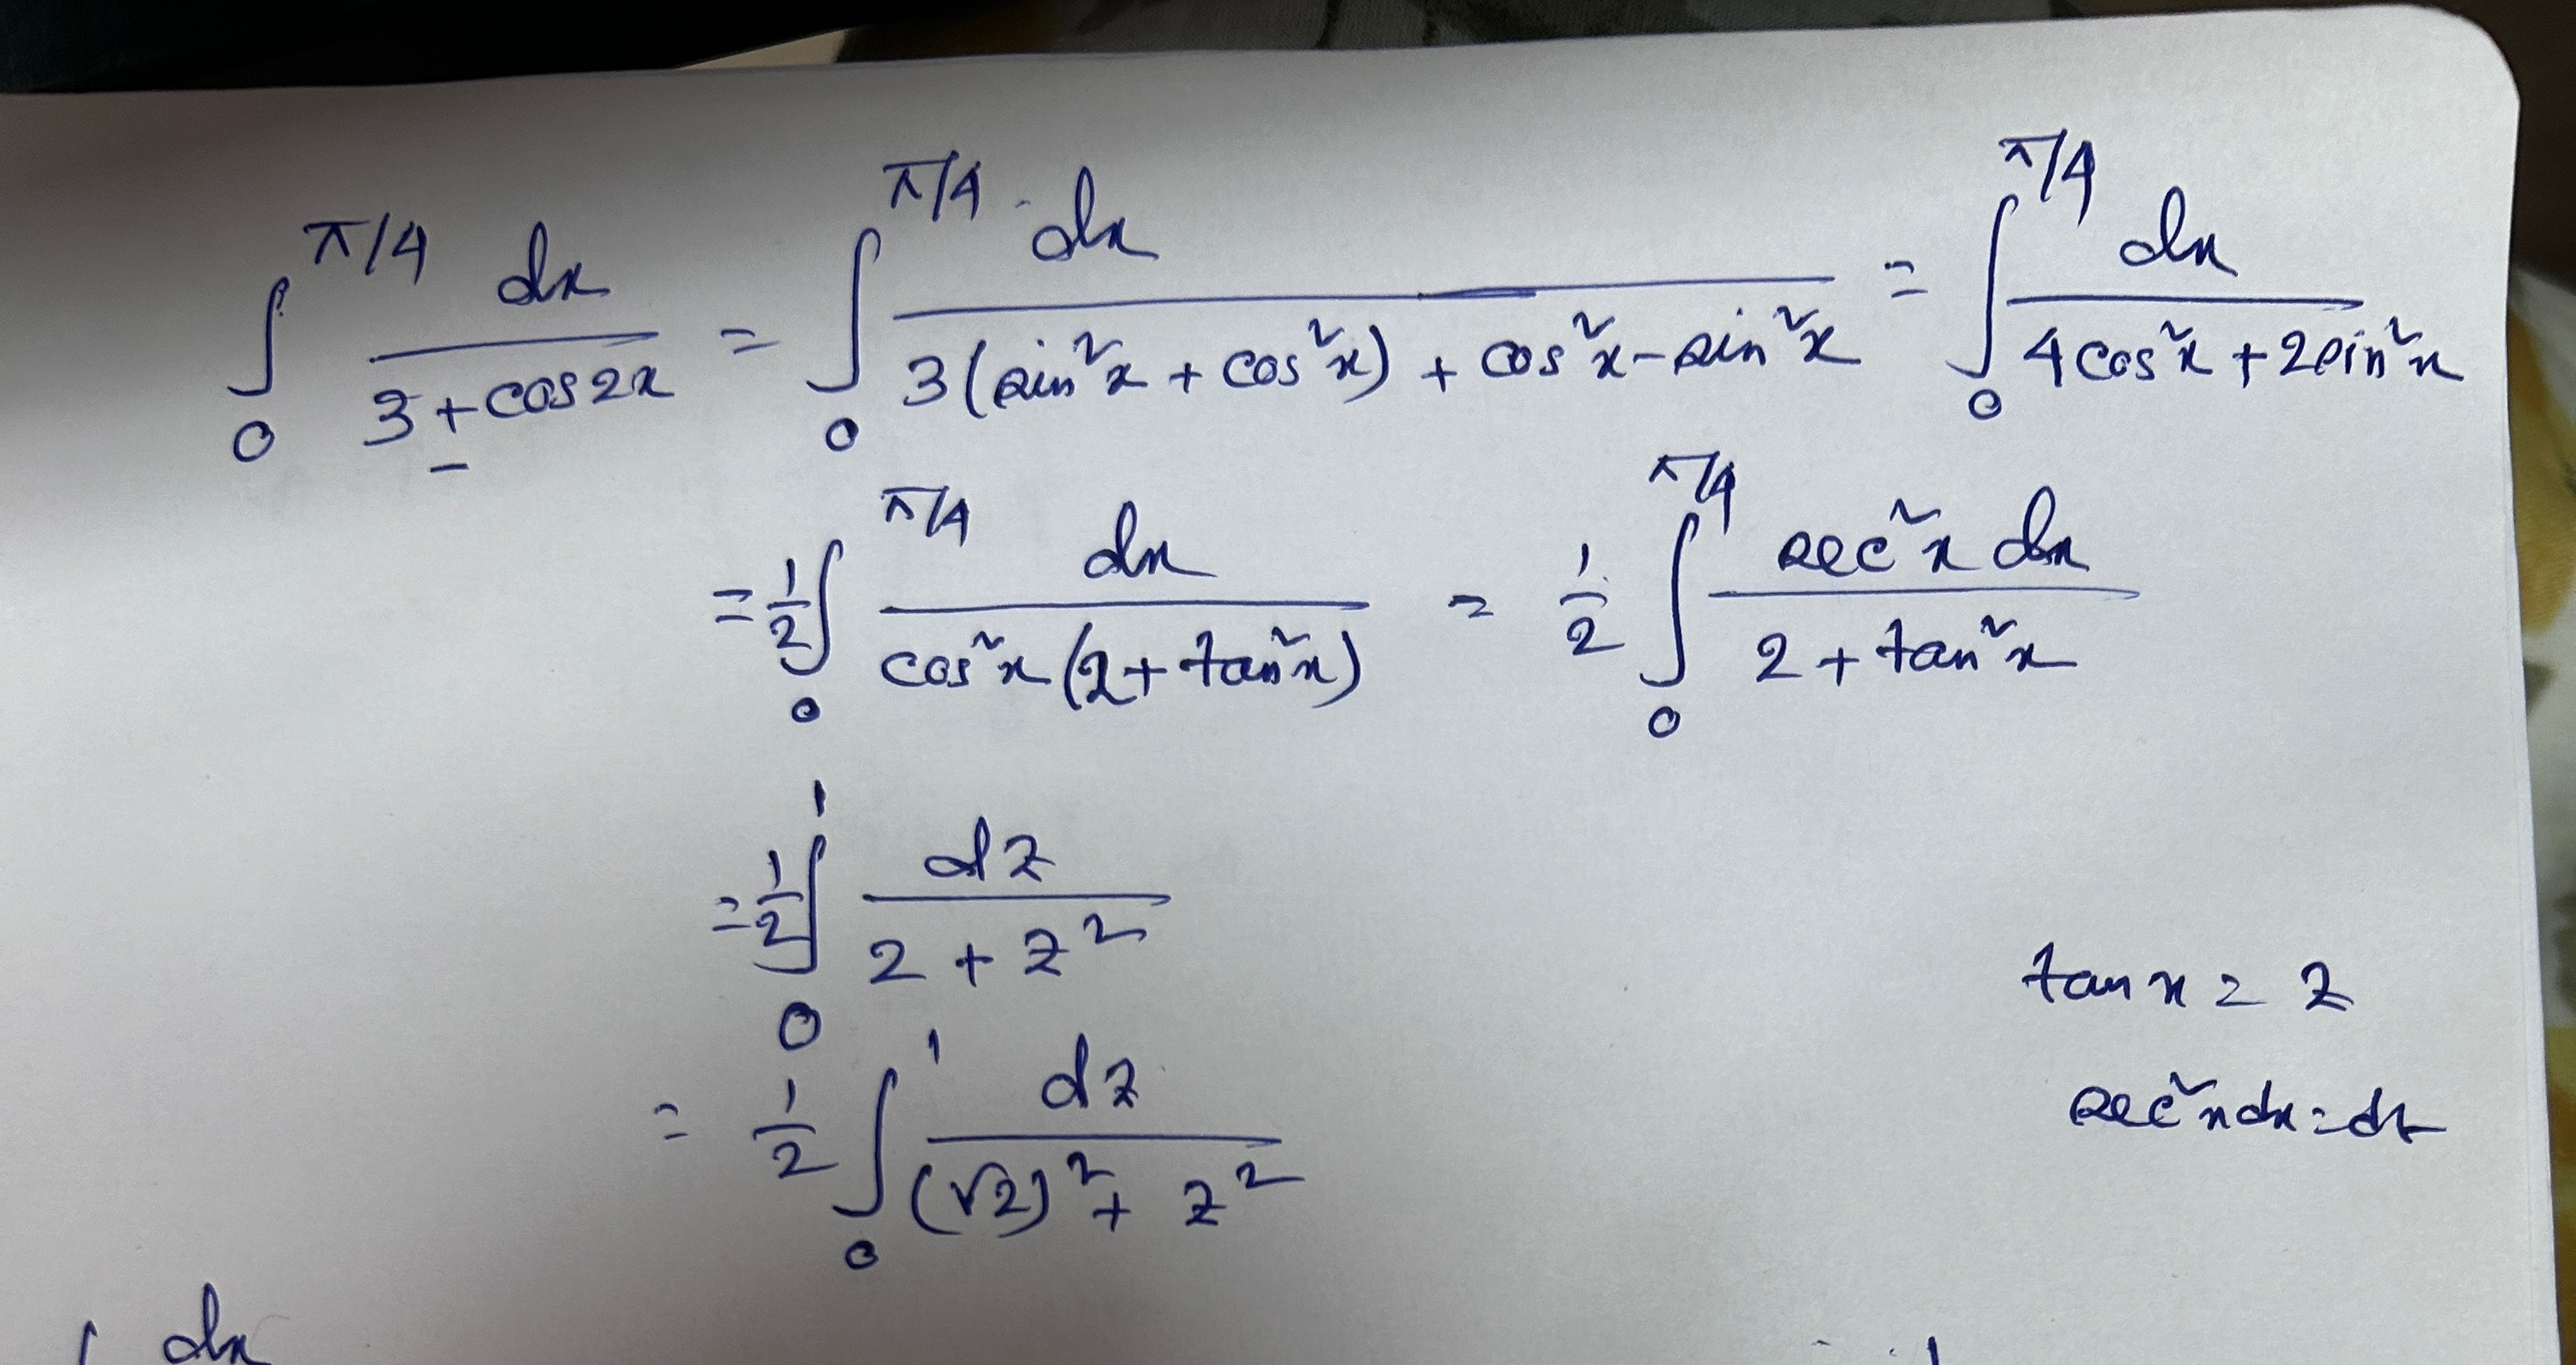 ∫₀^{π/4} dx/(3 + cos2x) = ∫₀^{π/4} dx/(3(sin²x + cos²x) + cos²x - sin²x) = ∫₀^{π/4} dx/(4cos²x + 2sin²x)
= 1/2 ∫₀^{π/4} dx/(cos²x (2 + tan²x)) = 1/2 ∫₀^{π/4} sec²x dx/(2 + tan²x)
= 1/2 ∫₀^1 dz/(2 + z²)
tan x = z
= 1/2 ∫₀^1 dz/((√2)² + z²)
sec²x dx = dz
dx